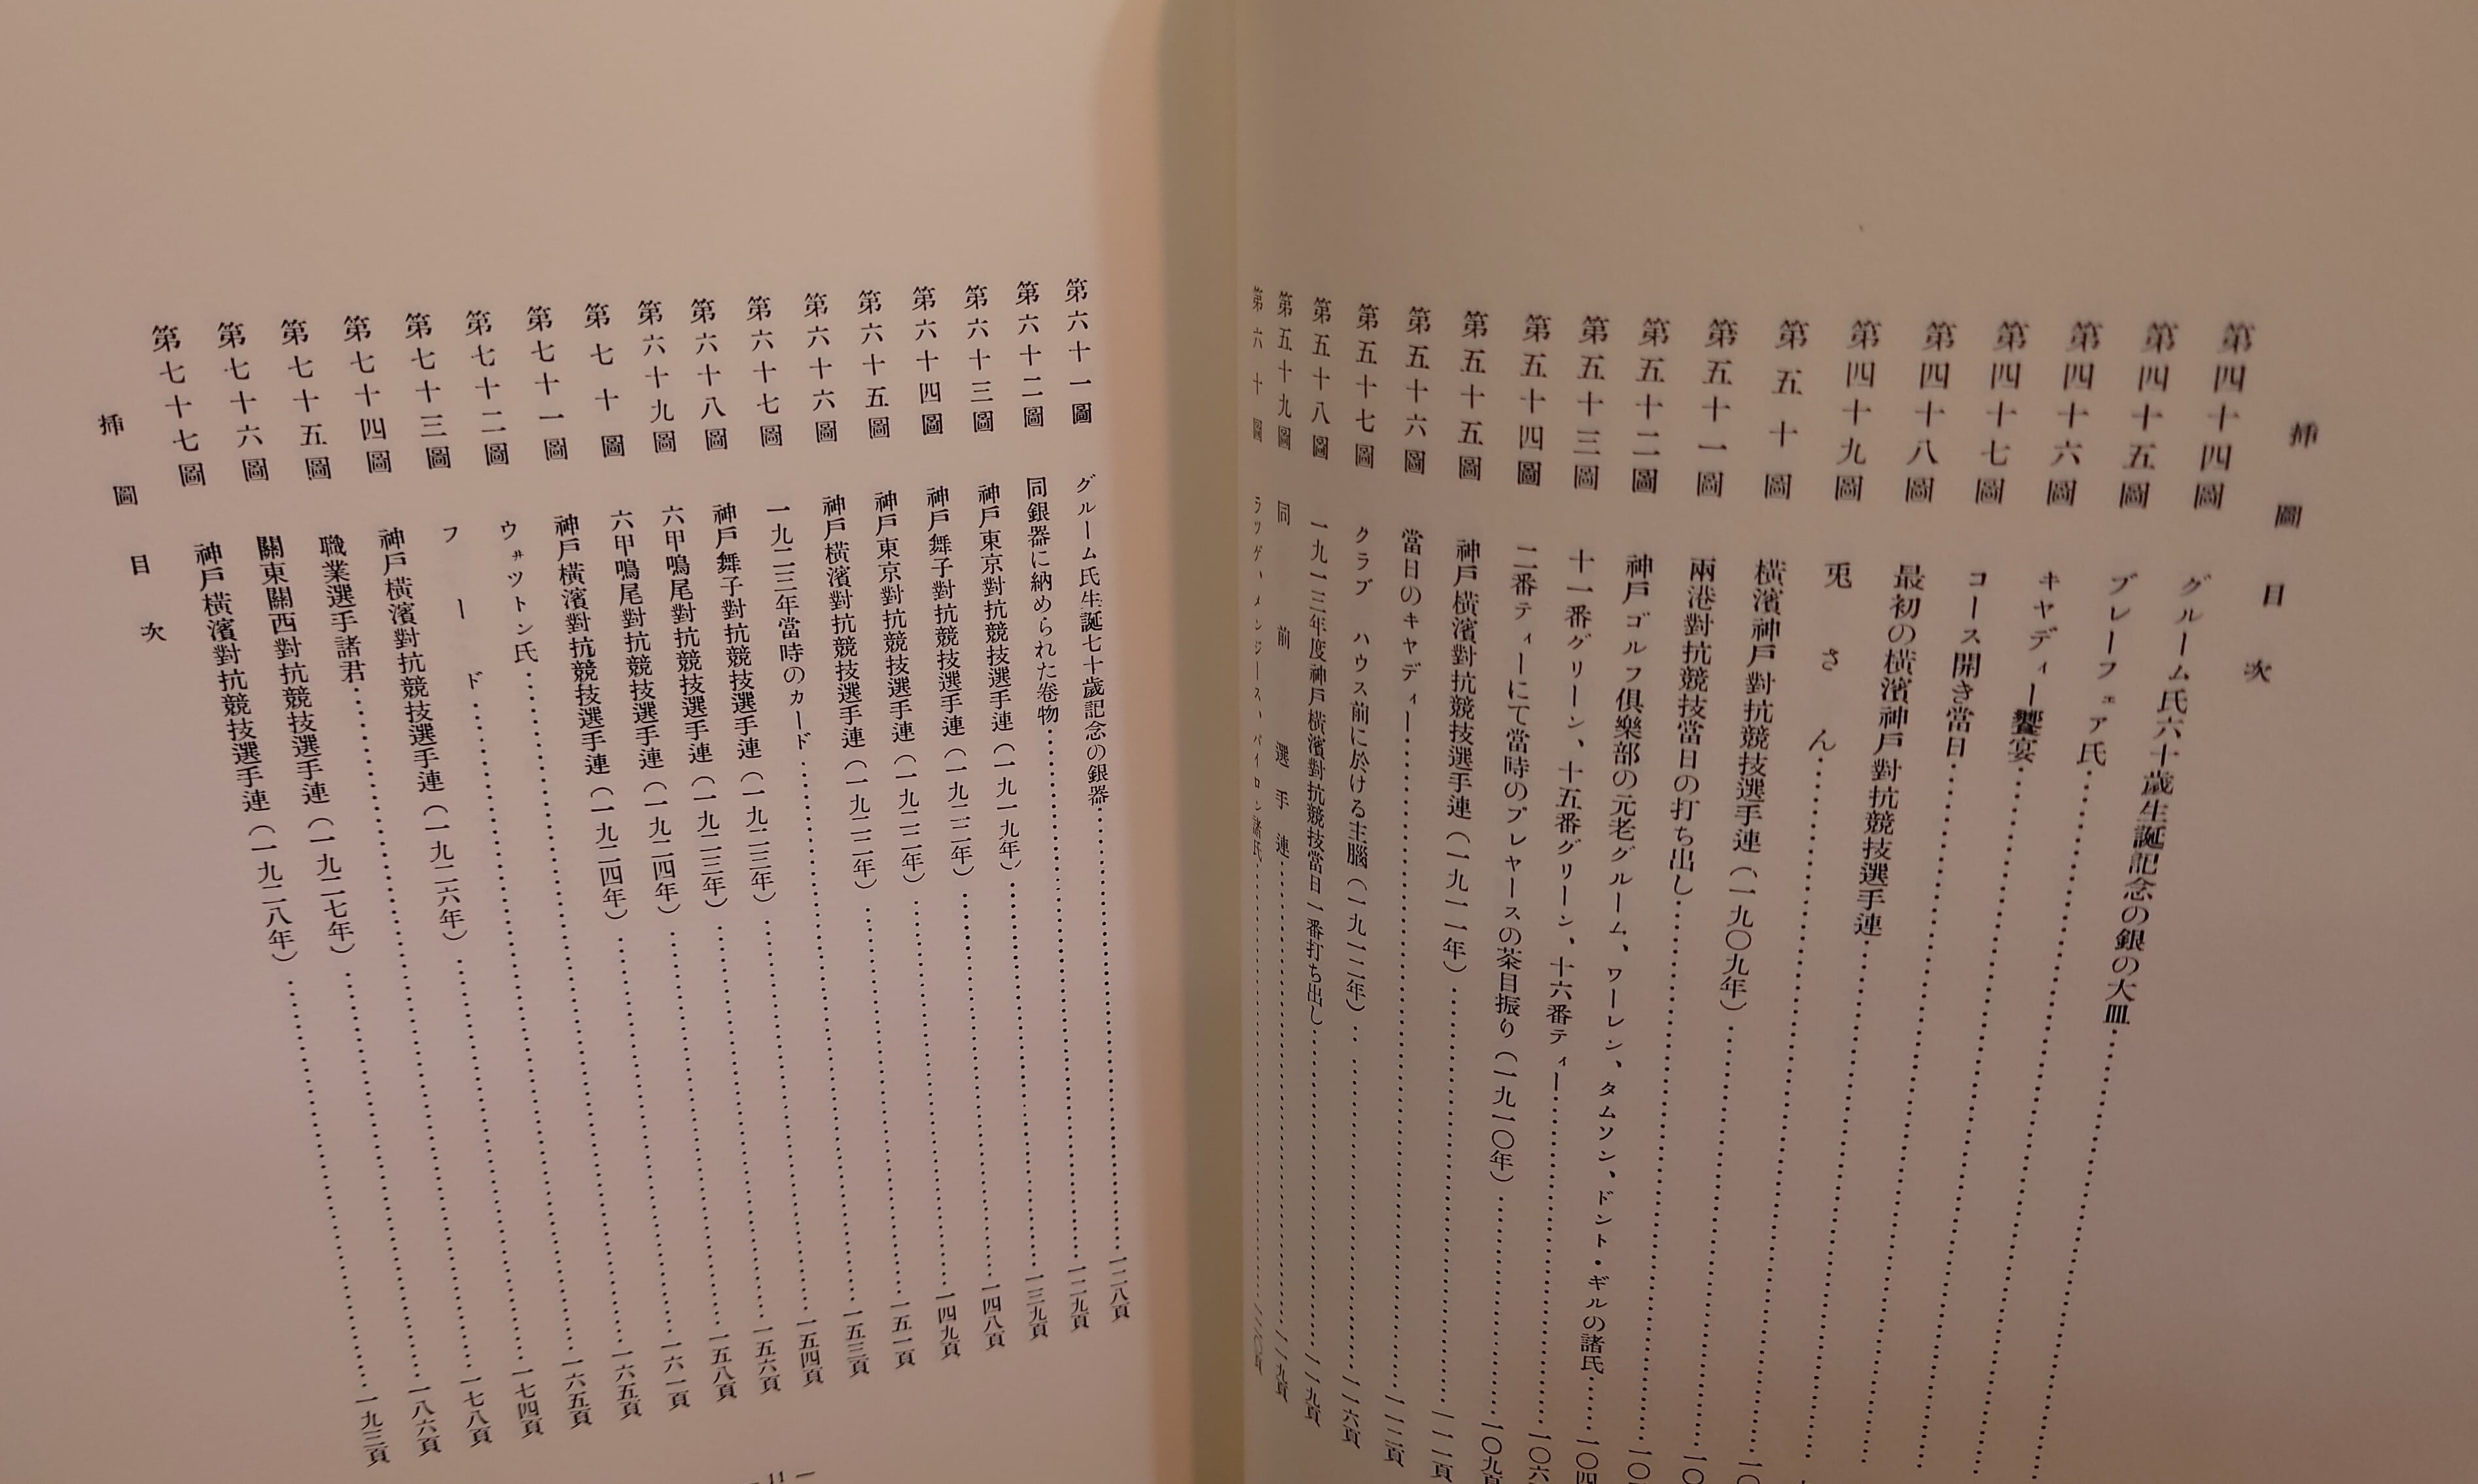 挿圖目次
第四十四圖 グルーム氏六十歳生誕記念の銀の大皿
第四十五圖 ブレーフェア氏
第四十六圖 キャディー饗宴
第四十七圖 コース開き當日
第四十八圖 最初の橫濱神戸對抗競技選手連
第四十九圖 兎さん
第五十圖 橫濱神戸對抗競技選手連(一九〇九年)
第五十一圖 兩港對抗競技當日の打ち出し
第五十二圖 神戸ゴルフ俱樂部の元老グルーム、ワーレン、タムソン、ドント・ギルの諸氏……一〇四
第五十三圖 十一番グリーン、十五番グリーン、十六番ティー……一〇六
第五十四圖 二番ティーにて當時のプレヤースの茶目振り(一九一〇年)……一〇九頁
第五十五圖 神戸橫濱對抗競技選手連(一九一一年)……一一一頁
第五十六圖 當日のキャディー……一一二頁
第五十七圖 クラブ ハウス前に於ける主腦(一九一二年)……一一六頁
第五十八圖 一九一三年度神戸橫濱對抗競技當日一番打ち出し……一一九頁
第五十九圖 同前選手連……一一九頁
第六十圖 ラッゲ、メンジース、バイロン諸氏……一二〇頁
第六十一圖 グルーム氏生誕七十歲記念の銀器……一二八頁
第六十二圖 同銀器に納められた卷物……一二九頁
第六十三圖 神戸東京對抗競技選手連(一九一九年)……一三九頁
第六十四圖 神戸舞子對抗競技選手連(一九二二年)……一四八頁
第六十五圖 神戸東京對抗競技選手連(一九二二年)……一四九頁
第六十六圖 神戸橫濱對抗競技選手連(一九二二年)……一五一頁
第六十七圖 一九二三年當時のカード……一五三頁
第六十八圖 神戸舞子對抗競技選手連(一九二三年)……一五四頁
第六十九圖 六甲鳴尾對抗競技選手連(一九二三年)……一五六頁
第七十圖 六甲鳴尾對抗競技選手連(一九二四年)……一五八頁
第七十一圖 神戸橫濱對抗競技選手連(一九二四年)……一六一頁
第七十二圖 ウヰットン氏……一六五頁
第七十三圖 フード……一六五頁
第七十四圖 神戸橫濱對抗競技選手連(一九二六年)……一七四頁
第七十五圖 職業選手諸君……一七八頁
第七十六圖 關東關西對抗競技選手連(一九二七年)……一八六頁
第七十七圖 神戸橫濱對抗競技選手連(一九二八年)……一九三頁
挿圖目次
— 11 —